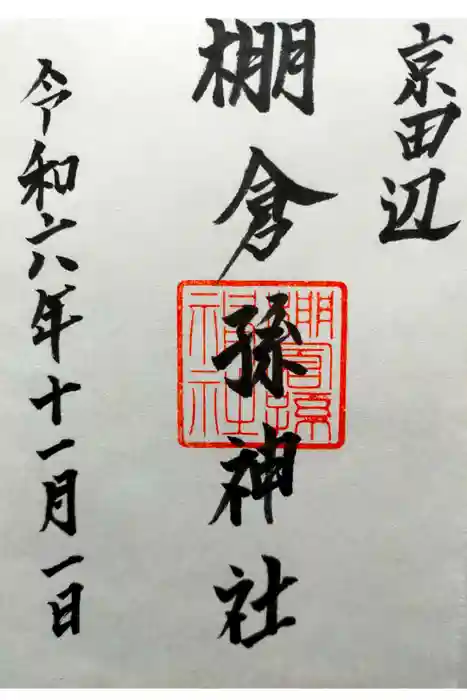 京田辺
棚倉孫神社
棚倉孫神社
令和六年十一月一日